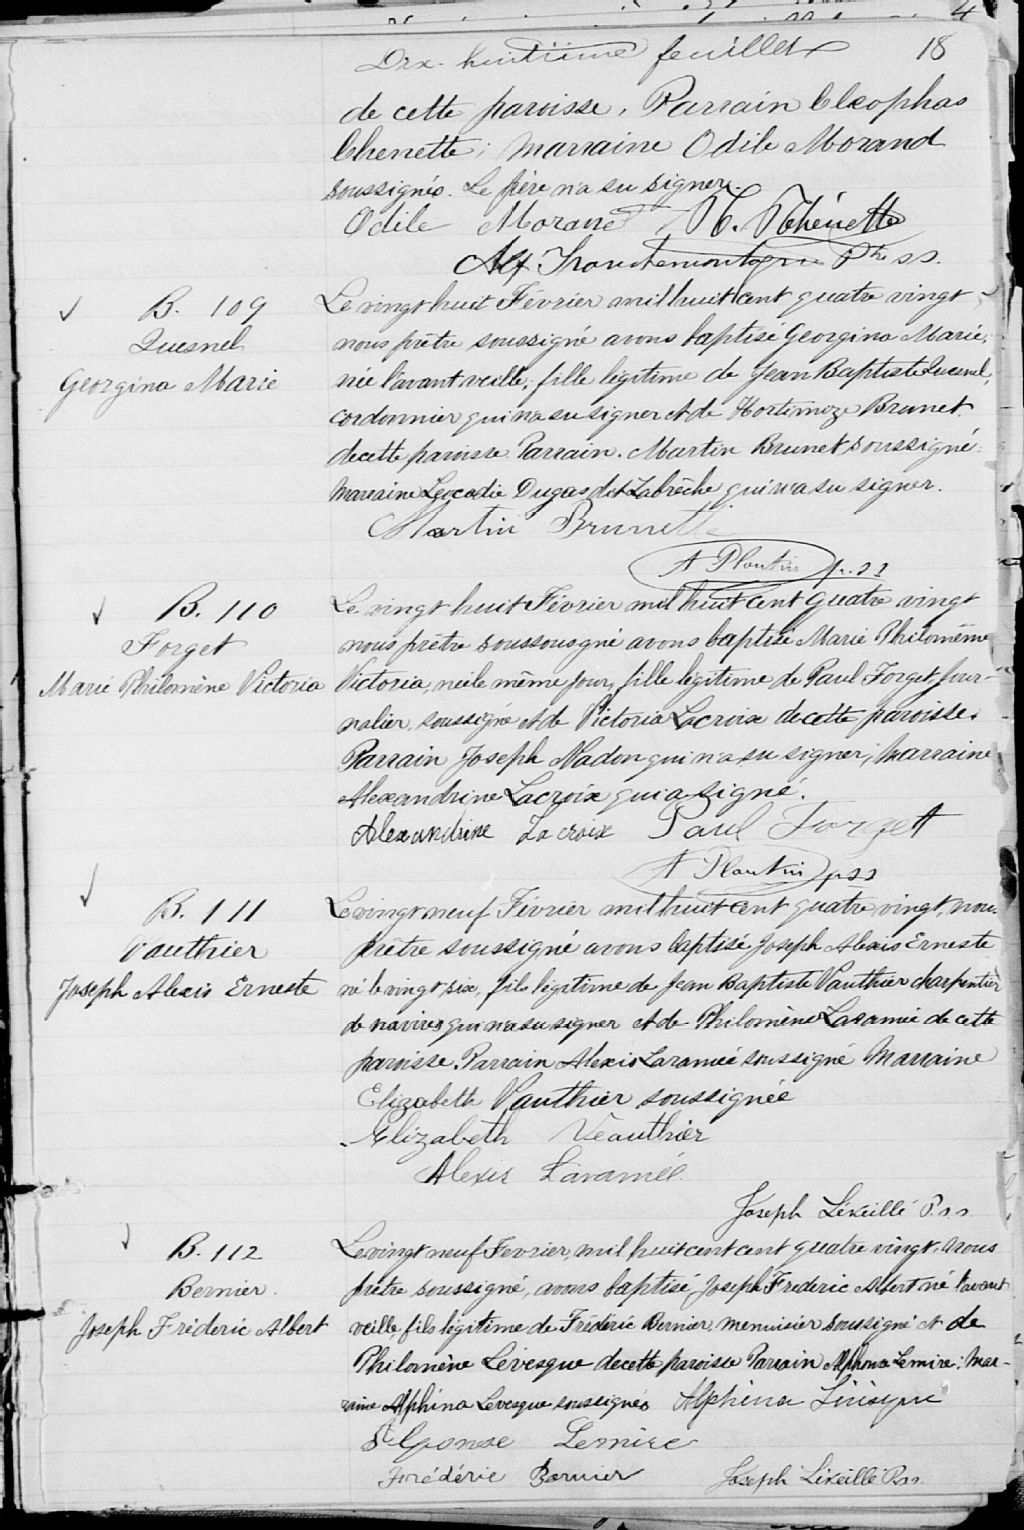 Dix-huitième feuillet 18
de cette paroisse. Parrain Cleophas
Chenette; marraine Odile Morand
soussignés. Le père n'a su signer.
Odile Morand
Ptre ss.
B. 109
Quesnel
Georgina Marie
Le vingt huit Février mil huit cent quatre vingt
nous prêtre soussigné avons baptisé Georgina Marie,
née l'avant veille, fille légitime de Jean Baptiste Quesnel,
cordonnier qui n'a su signer et de Hortimoze Brunet
de cette paroisse. Parrain. Martin Brunet soussigné:
marraine Leocadie Dugas dit Labrèche qui n'a su signer.
Martin Brunette
A Plantin p.ss
B. 110
Forget
Marie Philomène Victoria
Le vingt huit Février mil huit cent quatre vingt
nous prêtre soussousgné avons baptisé Marie Philomème
Victoria, née le même jour, fille légitime de Paul Forget, jour-
nalier, soussigné et de Victoria Lacroix de cette paroisse.
Parrain Joseph Nadon qui n'a su signer; marraine
Alexandrine Lacroix qui a signé.
Alexandrine Lacroix Paul Forgett
A Plantin pss
B. 111
Vauthier
Joseph Alexis Erneste
Le vingt neuf Février mil huit cent quatre vingt, nous
prêtre soussigné avons baptisé Joseph Alexis Erneste
né le vingt six, fils légitime de Jean Baptiste Vauthier charpentier
de navires qui n'a su signer et de Philomène Laramée de cette
paroisse. Parrain Alexis Laramée soussigné Marraine
Elizabeth Vauthier soussignée
Elizabeth Veauthier
Alexis Laramée
Joseph Léveillé P.ss.
B. 112
Bernier.
Joseph Fréderic Albert
Le vingt neuf Fevrier, mil huit cent cent quatre vingt, nous
prêtre soussigné, avons baptisé Joseph Frederic Albert né l'avant
veille fils légitime de Fréderic Bernier, menuisier soussigné et de
Philomène Lévesque de cette paroisse Parrain Alphonse Lemire: mar-
raine Alphina Levesque soussignés Alphina Lévesque
Alponse Lemire
Frédéric Bernier Joseph Léveillé P.ss.